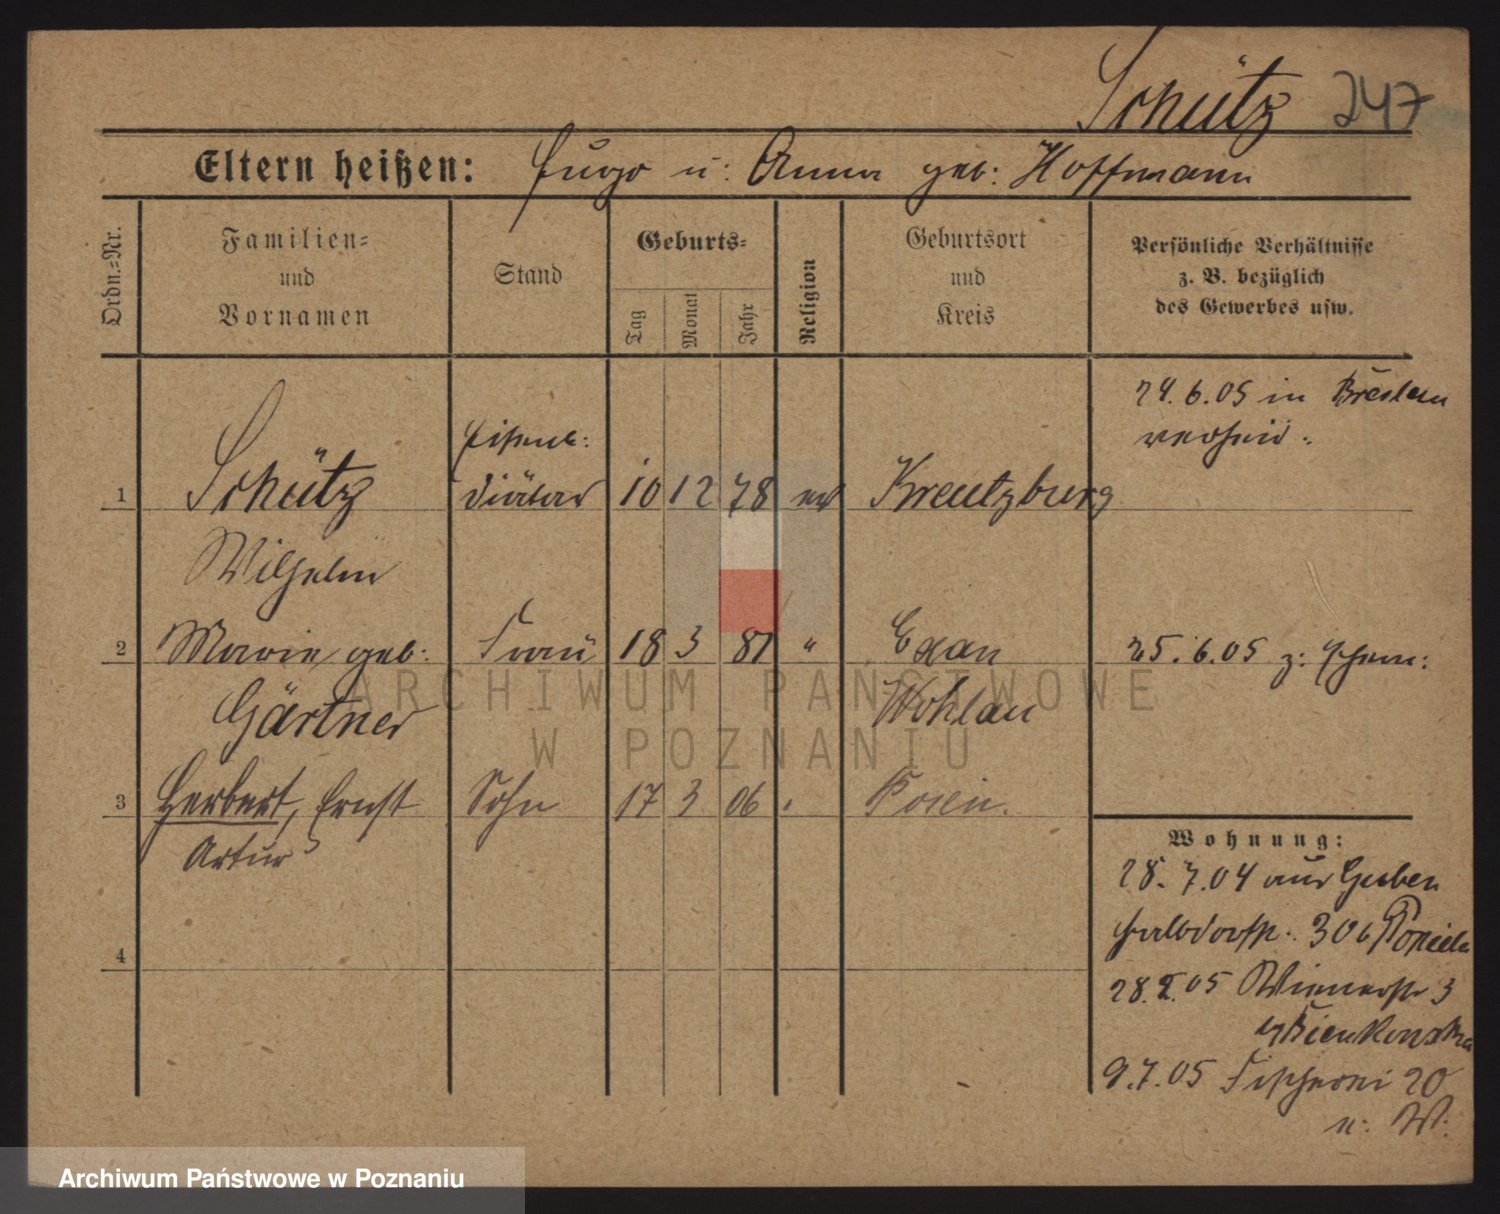 Schütz 247
Eltern heißen: Hugo u: Anna geb: Hoffmann
Ordn.=Nr.
Familien=
und
Vornamen
Stand
Geburts=
Tag
Monat
Jahr
Religion
Geburtsort
und
Kreis
Persönliche Verhältnisse
z. B. bezüglich
des Gewerbes usw.
24.6.05 in Breslau
verheir.
Eisenb:
1 Schütz diätar 10 12 78 ev Kreutzburg
Wilhelm
2 Marie geb: Frau 18 3 81 " 25.6.05 z:
Gärtner Wohlau
3 Herbert, Ernst Sohn 17 3 06 " Posen.
Artur
4
Wohnung:
28.7.04 aus Guben
Halbdorfstr. 30 b
28.2.05 Wienerstr 3
b/
9.7.05 Fischerei 20
n: W:
ARCHIWUM PAŃSTWOWE
W POZNANIU
Archiwum Państwowe w Poznaniu